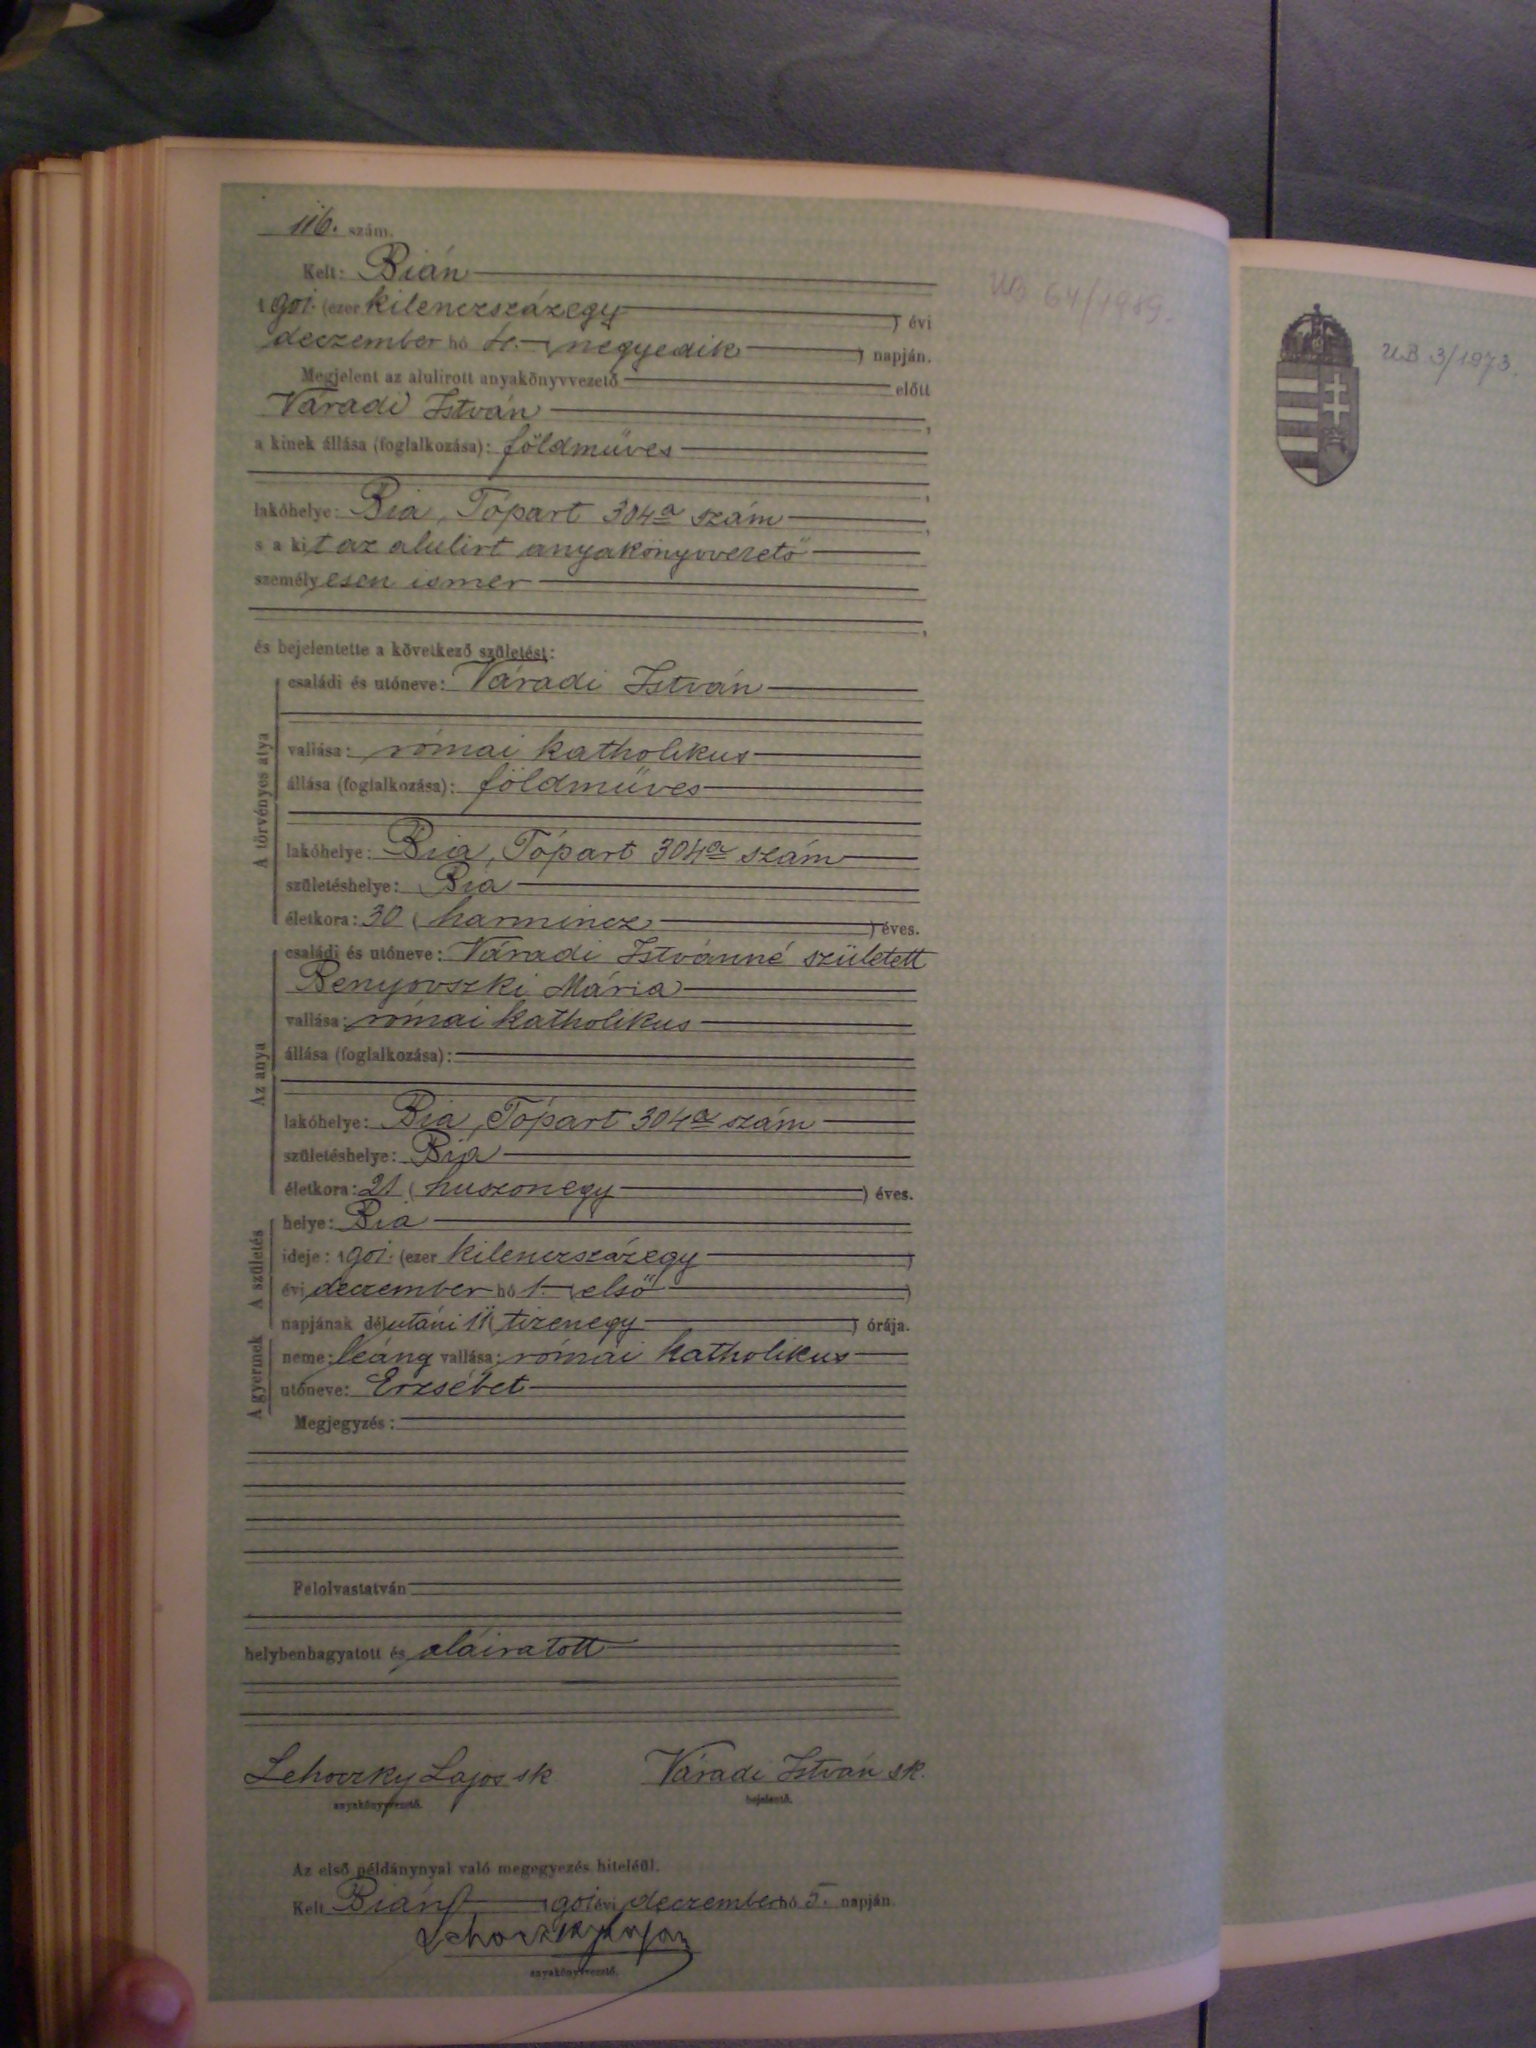 116. szám.
Kelt: Bián
1901. (ezer kilenczszázegy) évi
deczember hó 4. (negyedik) napján.
Megjelent az alulirott anyakönyvvezető előtt
Váradi István,
a kinek állása (foglalkozása): földműves
,
lakóhelye: Bia, Tópart 304a szám,
s a kit az alulirt anyakönyvvezető
személyesen ismer
,
és bejelentette a következő születést:
A törvényes atya
családi és utóneve: Váradi István
vallása: római katholikus
állása (foglalkozása): földműves
lakóhelye: Bia, Tópart 304a szám
születéshelye: Bia
életkora: 30 (harmincz) éves.
Az anya
családi és utóneve: Váradi Istvánné született
Benyovszki Mária
vallása: római katholikus
állása (foglalkozása):
lakóhelye: Bia, Tópart 304a szám
születéshelye: Bia
életkora: 21 (huszonegy) éves.
A születés
helye: Bia
ideje: 1901. (ezer kilenczszázegy)
évi deczember hó 1. (első)
napjának délutáni 11 (tizenegy) órája.
A gyermek
neme: leány vallása: római katholikus
utóneve: Erzsébet
Megjegyzés:
Felolvastatván
helybenhagyatott és aláiratott
Lehoczky Lajos sk Váradi István sk.
anyakönyvvezető. bejelentő.
Az első példánynyal való megegyezés hiteléül.
Kelt Bián 1901 évi deczember hó 5. napján
Lehoczky Lajos
anyakönyvvezető.
UB 64/1989.
UB 3/1973.